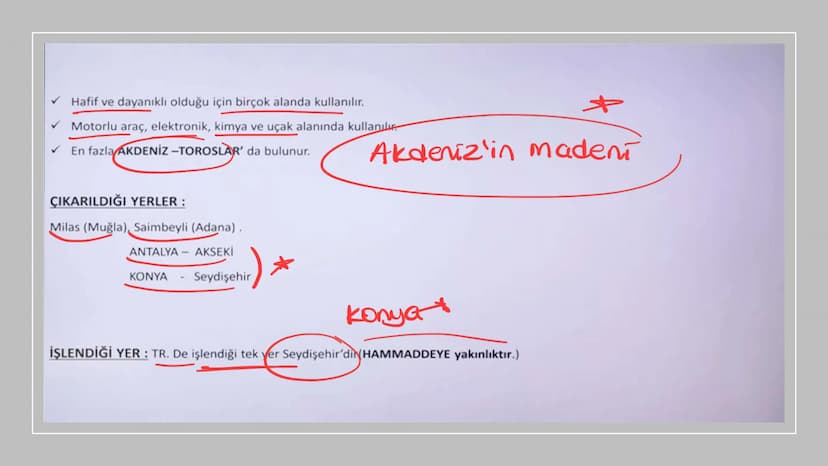 ✓ Hafif ve dayanıklı olduğu için birçok alanda kullanılır.
✓ Motorlu araç, elektronik, kimya ve uçak alanında kullanılır.
✓ En fazla AKDENİZ –TOROSLAR’ da bulunur.
Akdeniz'in madeni
ÇIKARILDIĞI YERLER :
Milas (Muğla), Saimbeyli (Adana) .
ANTALYA – AKSEKİ
KONYA - Seydişehir
Konya
İŞLENDİĞİ YER : TR. De işlendiği tek yer Seydişehir’dir(HAMMADDEYE yakınlıktır.)